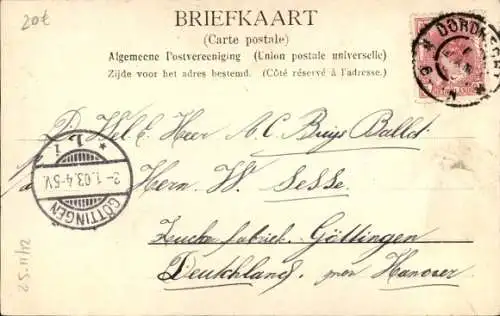 20€
BRIEFKAART
(Carte postale)
Algemeene Postvereeniging (Union postale universelle)
Zijde voor het adres bestemd. (Côté réservé à l'adresse.)
DORDRECHT
D. Wel E. Heer A C Buijs Ballot
Hern W. Sesse
Zucker fabriek. Göttingen
Deutschland. per Hanover
* 1. *
2-1.03.4-5V.
GÖTTINGEN
25.11/12